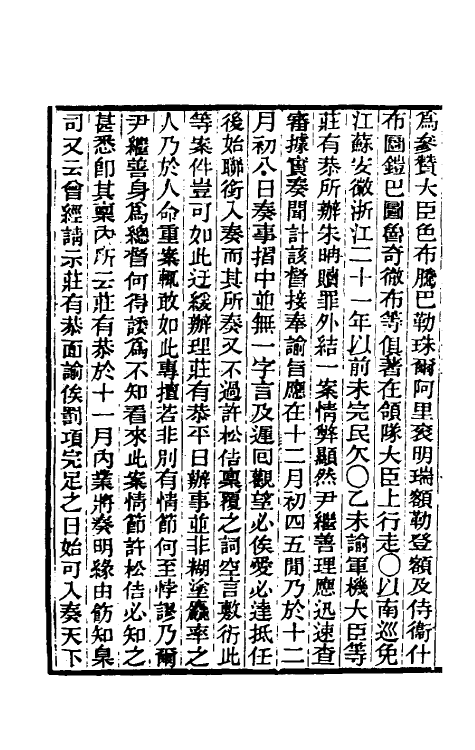 爲參贊大臣色布騰巴勒珠爾阿里袞明瑞額勒登額及侍衞什
布圖鎧巴圖魯奇徹布等俱著在領隊大臣上行走○以南巡免
江蘇安徽浙江二十一年以前未完民欠○乙未諭軍機大臣等
莊有恭所辦朱呐贖罪外結一案情弊顯然尹繼善理應迅速查
審據實奏聞計該督接奉諭旨應在十二月初四五間乃於十二
月初八日奏事摺中並無一字言及遲回觀望必俟愛必達抵任
後始聯銜入奏而其所奏又不過許松佶稟覆之詞空言敷衍此
等案件豈可如此迂緩辦理莊有恭平日辦事並非糊塗麤率之
人乃於人命重案輒敢如此專擅若非別有情節何至悖謬乃爾
尹繼善身爲總督何得諉爲不知看來此案情節許松佶必知之
甚悉卽其稟內所云莊有恭於十一月內業將奏明緣由飭知臬
司又云曾經請示莊有恭面諭俟罰項完足之日始可入奏天下